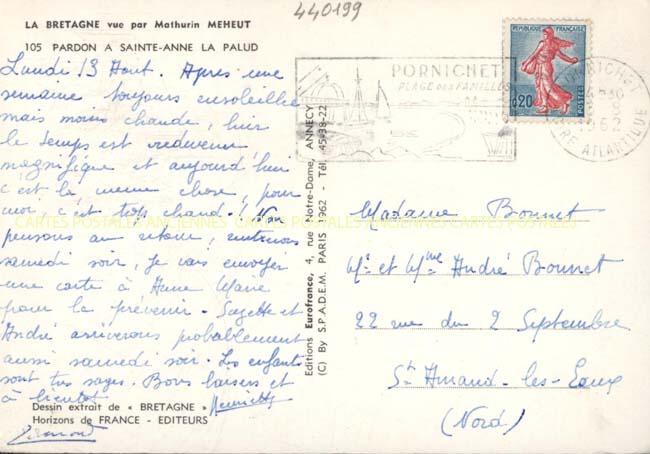 440199
LA BRETAGNE vue par Mathurin MEHEUT
105 PARDON A SAINTE-ANNE LA PALUD
Lundi 13 Aout. Après une
semaine toujours ensoleillée
mais moins chaude, hier
le temps est redevenu
magnifique et aujourd'hui
c'est la même chose, pour
moi, c'est trop chaud! Nous
pensons au retour, rentrerons
samedi soir, je vais envoyer
une carte à Anne Marie
pour la prévenir. Suzette et
André arriverons probablement
aussi samedi soir. Les enfants
sont très sages. Bons baisers et
à bientot
Dessin extrait de « BRETAGNE »
Horizons de FRANCE - EDITEURS
Editions Eurofrance, 4, rue Notre-Dame, ANNECY
(C) By S.P.A.D.E.M. PARIS 1962 - Tél. 45-38-22
PORNICHET
PLAGE DES FAMILLES
REPUBLIQUE FRANÇAISE
0,20
POSTES
PORNICHET
LOIRE ATLANTIQUE
CARTES POSTALES ANCIENNES CARTES POSTALES ANCIENNES CARTES POSTALES
Madame Bonnet
Mr et Mme André Bonnet
22 rue du 2 Septembre
St Amand-les-Eaux
(Nord)